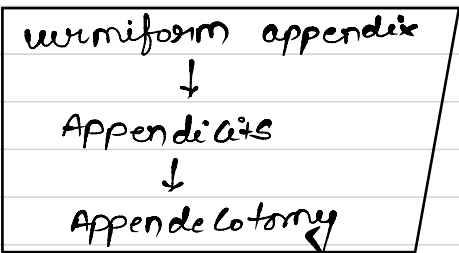 vermiform appendix
↓
Appendicits
↓
Appendecotomy